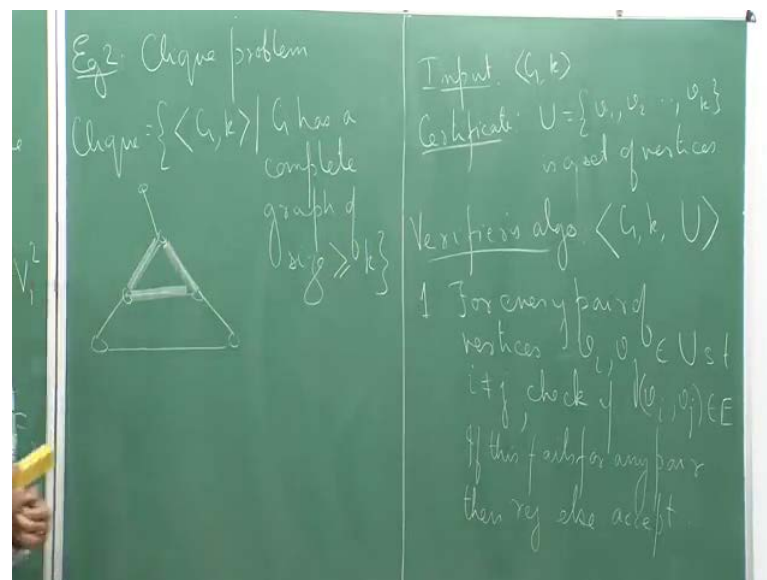 Eg 2: Clique problem
Clique = { ⟨G, k⟩ | G has a
complete
graph of
size ≥ k}
V₁²
Input: ⟨G, k⟩
Certificate: U = {v₁, v₂ ..., v_k}
is a set of vertices
Verifier's algo ⟨G, k, U⟩
1 For every pair of
vertices v_i, v_j ∈ U s t
i ≠ j, check if (v_i, v_j) ∈ E
If this fails for any pair
then rej else accept.